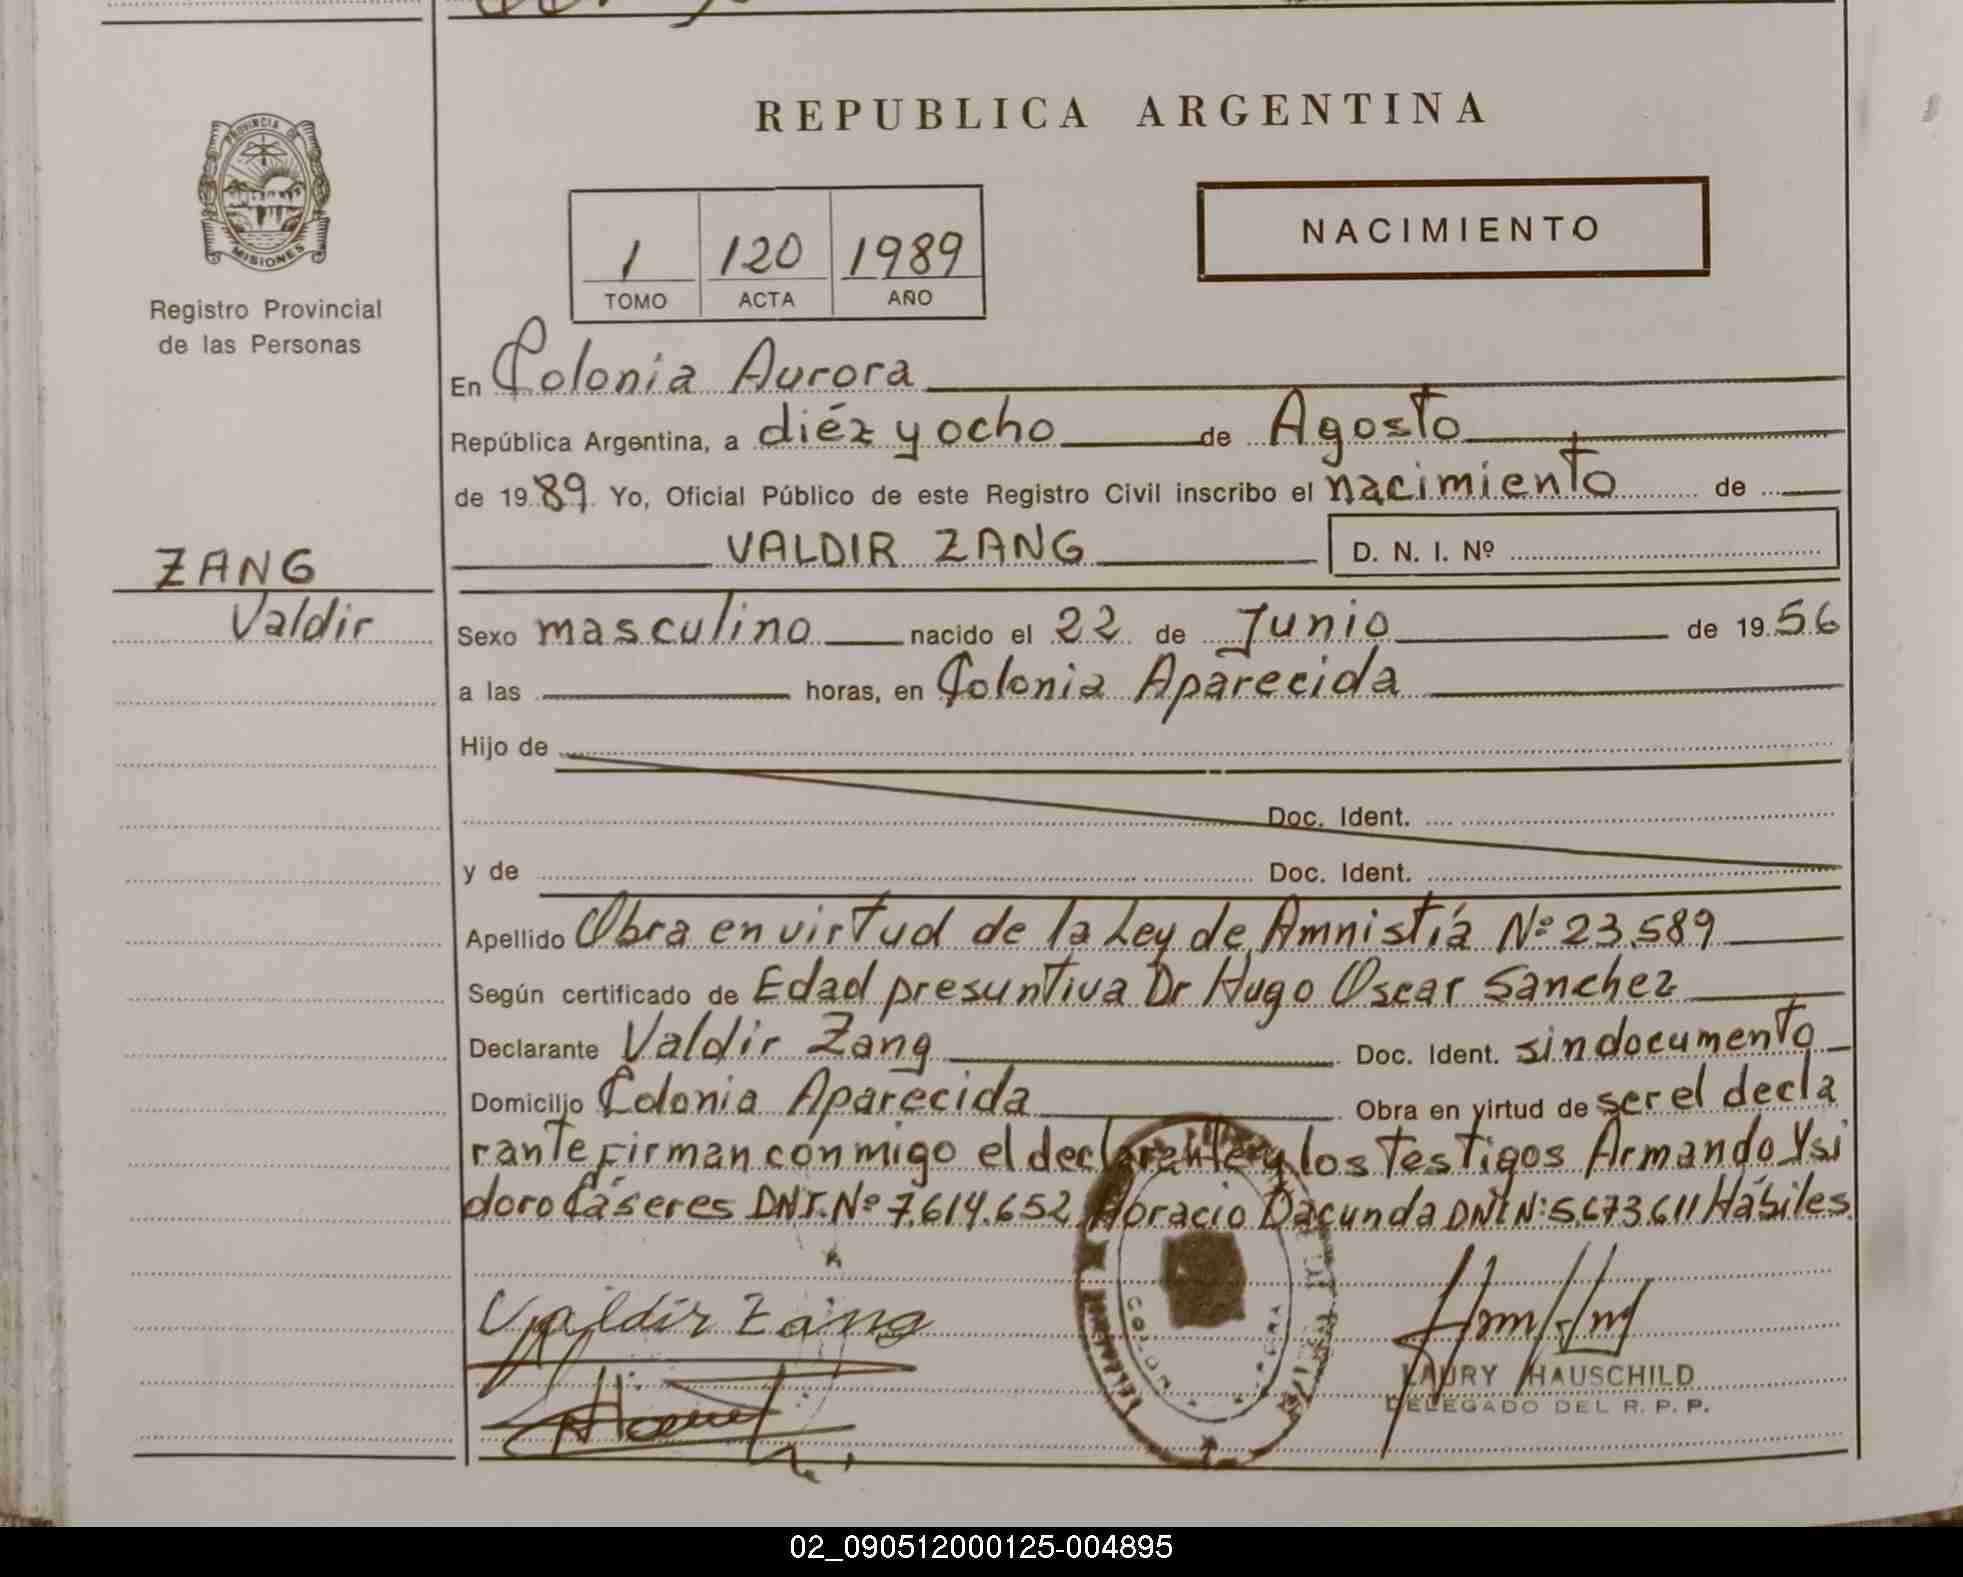 REPUBLICA ARGENTINA
PROVINCIA DE
MISIONES
Registro Provincial
de las Personas
NACIMIENTO
1 120 1989
TOMO ACTA AÑO
En Colonia Aurora
República Argentina, a diéz y ocho de Agosto
de 1989 Yo, Oficial Público de este Registro Civil inscribo el nacimiento de
VALDIR ZANG D. N. I. Nº
ZANG
Valdir
Sexo masculino nacido el 22 de Junio de 1956
a las horas, en Colonia Aparecida
Hijo de
Doc. Ident.
y de Doc. Ident.
Apellido Obra en virtud de la Ley de Amnistía Nº 23.589
Según certificado de Edad presuntiva Dr Hugo Oscar Sanchez
Declarante Valdir Zang Doc. Ident. sin documento
Domicilio Colonia Aparecida Obra en virtud de ser el decla
rante firman conmigo el declarante y los testigos Armando Ysi
doro Cáseres DNI. Nº 7.614.652, Horacio Dacunda DNI N: 5.673.611 Hábiles.
Valdir Zang
LAURY HAUSCHILD
DELEGADO DEL R. P. P.
02_090512000125-004895